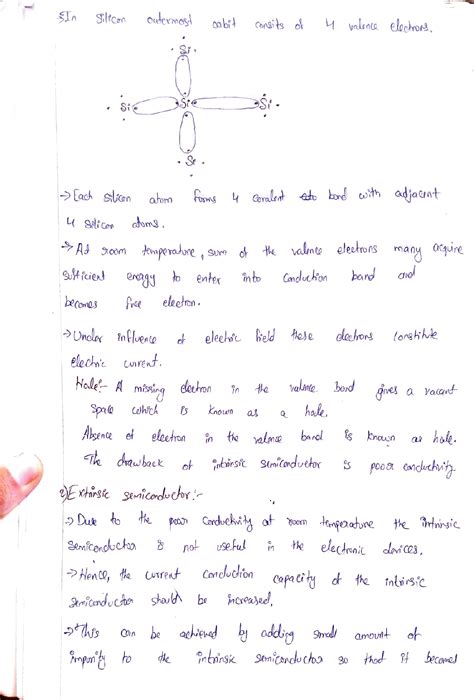 ⇒In Silicon outermost orbit consits of 4 valence electrons.
Si
Si Si Si
Si
→ Each silicon atom forms 4 covalent bond with adjacent
4 silicon atoms.
→ At room temperature, sum of the valence electrons many acquire
sufficient energy to enter into Conduction band and
becomes free electron.
→ Under influence of electric field these electrons constitute
electric current.
Hole:- A missing electron in the valence band gives a vacant
space which is known as a hole.
Absence of electron in the valence band is known as hole.
The drawback of intrinsic semiconductor is poor conductivity.
2) Extrinsic semiconductor:-
→ Due to the poor conductivity at room temperature the intrinsic
semiconductor is not useful in the electronic devices.
→ Hence, the current conduction capacity of the intrinsic
semiconductor should be increased.
→ This can be achieved by adding small amount of
impurity to the intrinsic semiconductor so that it becomes